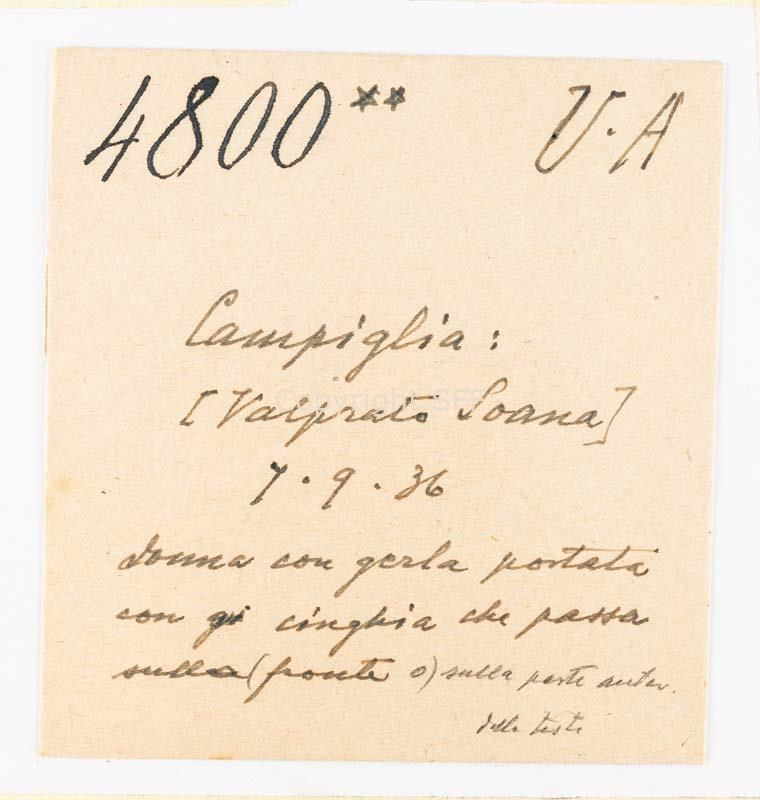 4800** V. A
Campiglia:
[Valprato Soana]
7. 9. 36
donna con gerla portata
con cinghia che passa
sulla (fronte o) sulla parte anter.
della testa